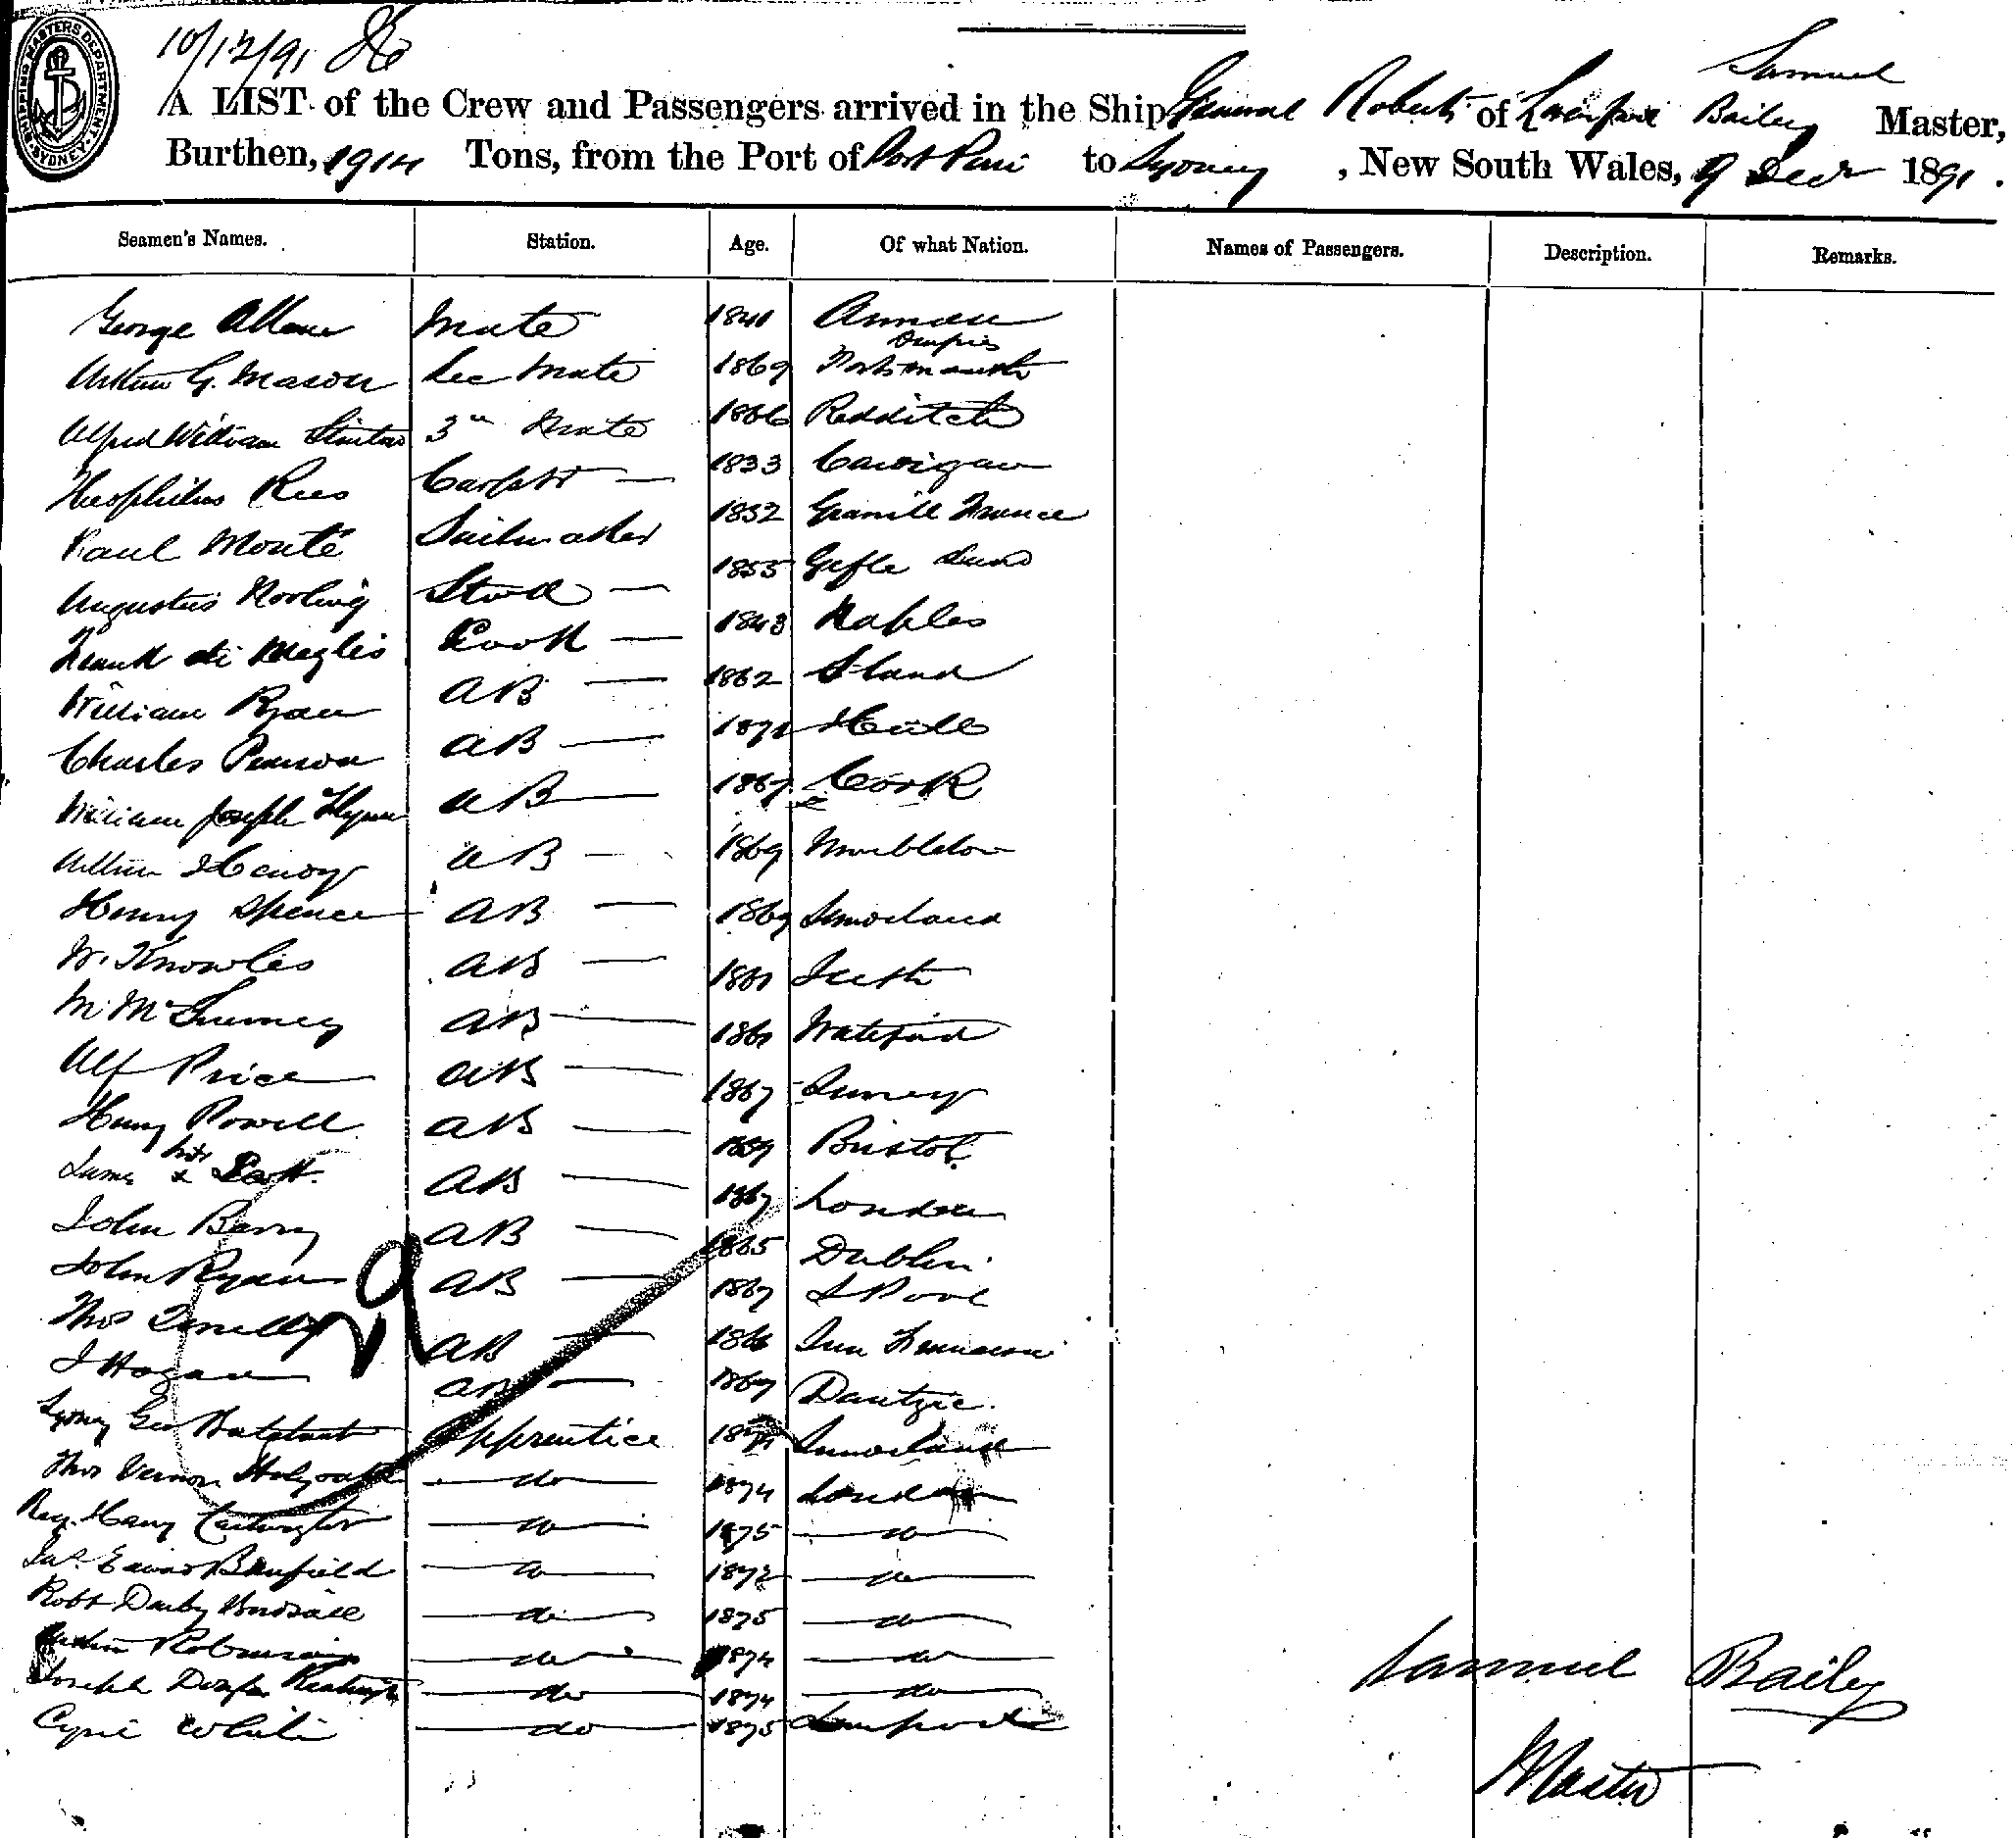 SHIPPING MASTERS DEPARTMENT SYDNEY
10/12/91
A LIST of the Crew and Passengers arrived in the Ship General Roberts of Liverpool Samuel Bailey Master,
Burthen, 1914 Tons, from the Port of Port Pirie to Sydney, New South Wales, 9 Decr 1891.
Seamen's Names. Station. Age. Of what Nation. Names of Passengers. Description. Remarks.
George Mate 1841 Annan Dumfries
Arthur G. Mason Sec Mate 1869 Portsmouth
Alfred William 3rd Mate 1866 Redditch
Theophilus Rees Carptr — 1833 Cardigan
Paul Monté Sailmaker 1852 Granville France
Augustus Stwd — 1855 Gefle
Frank di Meglio Cook — 1843 Naples
William Ryan AB — 1862
Charles Pearson AB — 1871 Hull
William Joseph Flynn AB — 1867 Cork
Arthur AB — 1869 Wimbledon
Henry Spence AB — 1869
W. Knowles AB —
M. Mc AB — Waterford
Alf Price AB — 1867 Surrey
Henry Powell AB — 1859 Bristol
James his x Scott AB — 1867 London
John Barry AB — 1865 Dublin
John Ryan AB — 1867 L Pool
Thos AB — 1866 San Francisco
J Hogan AB — 1869 Dantzic
Sydney Geo Apprentice Sunderland
Thos Vernon Holyoake — do — 1874 London
Reg. Harry — do — 1875 — do —
Jas. Edward Banfield — do — 1872 — do —
Robt Darby — do — 1875 — do —
Robinson — do — 1874 — do —
Joseph — do — 1874 — do —
Cyril White — do — 1875
29
Samuel Bailey
Master